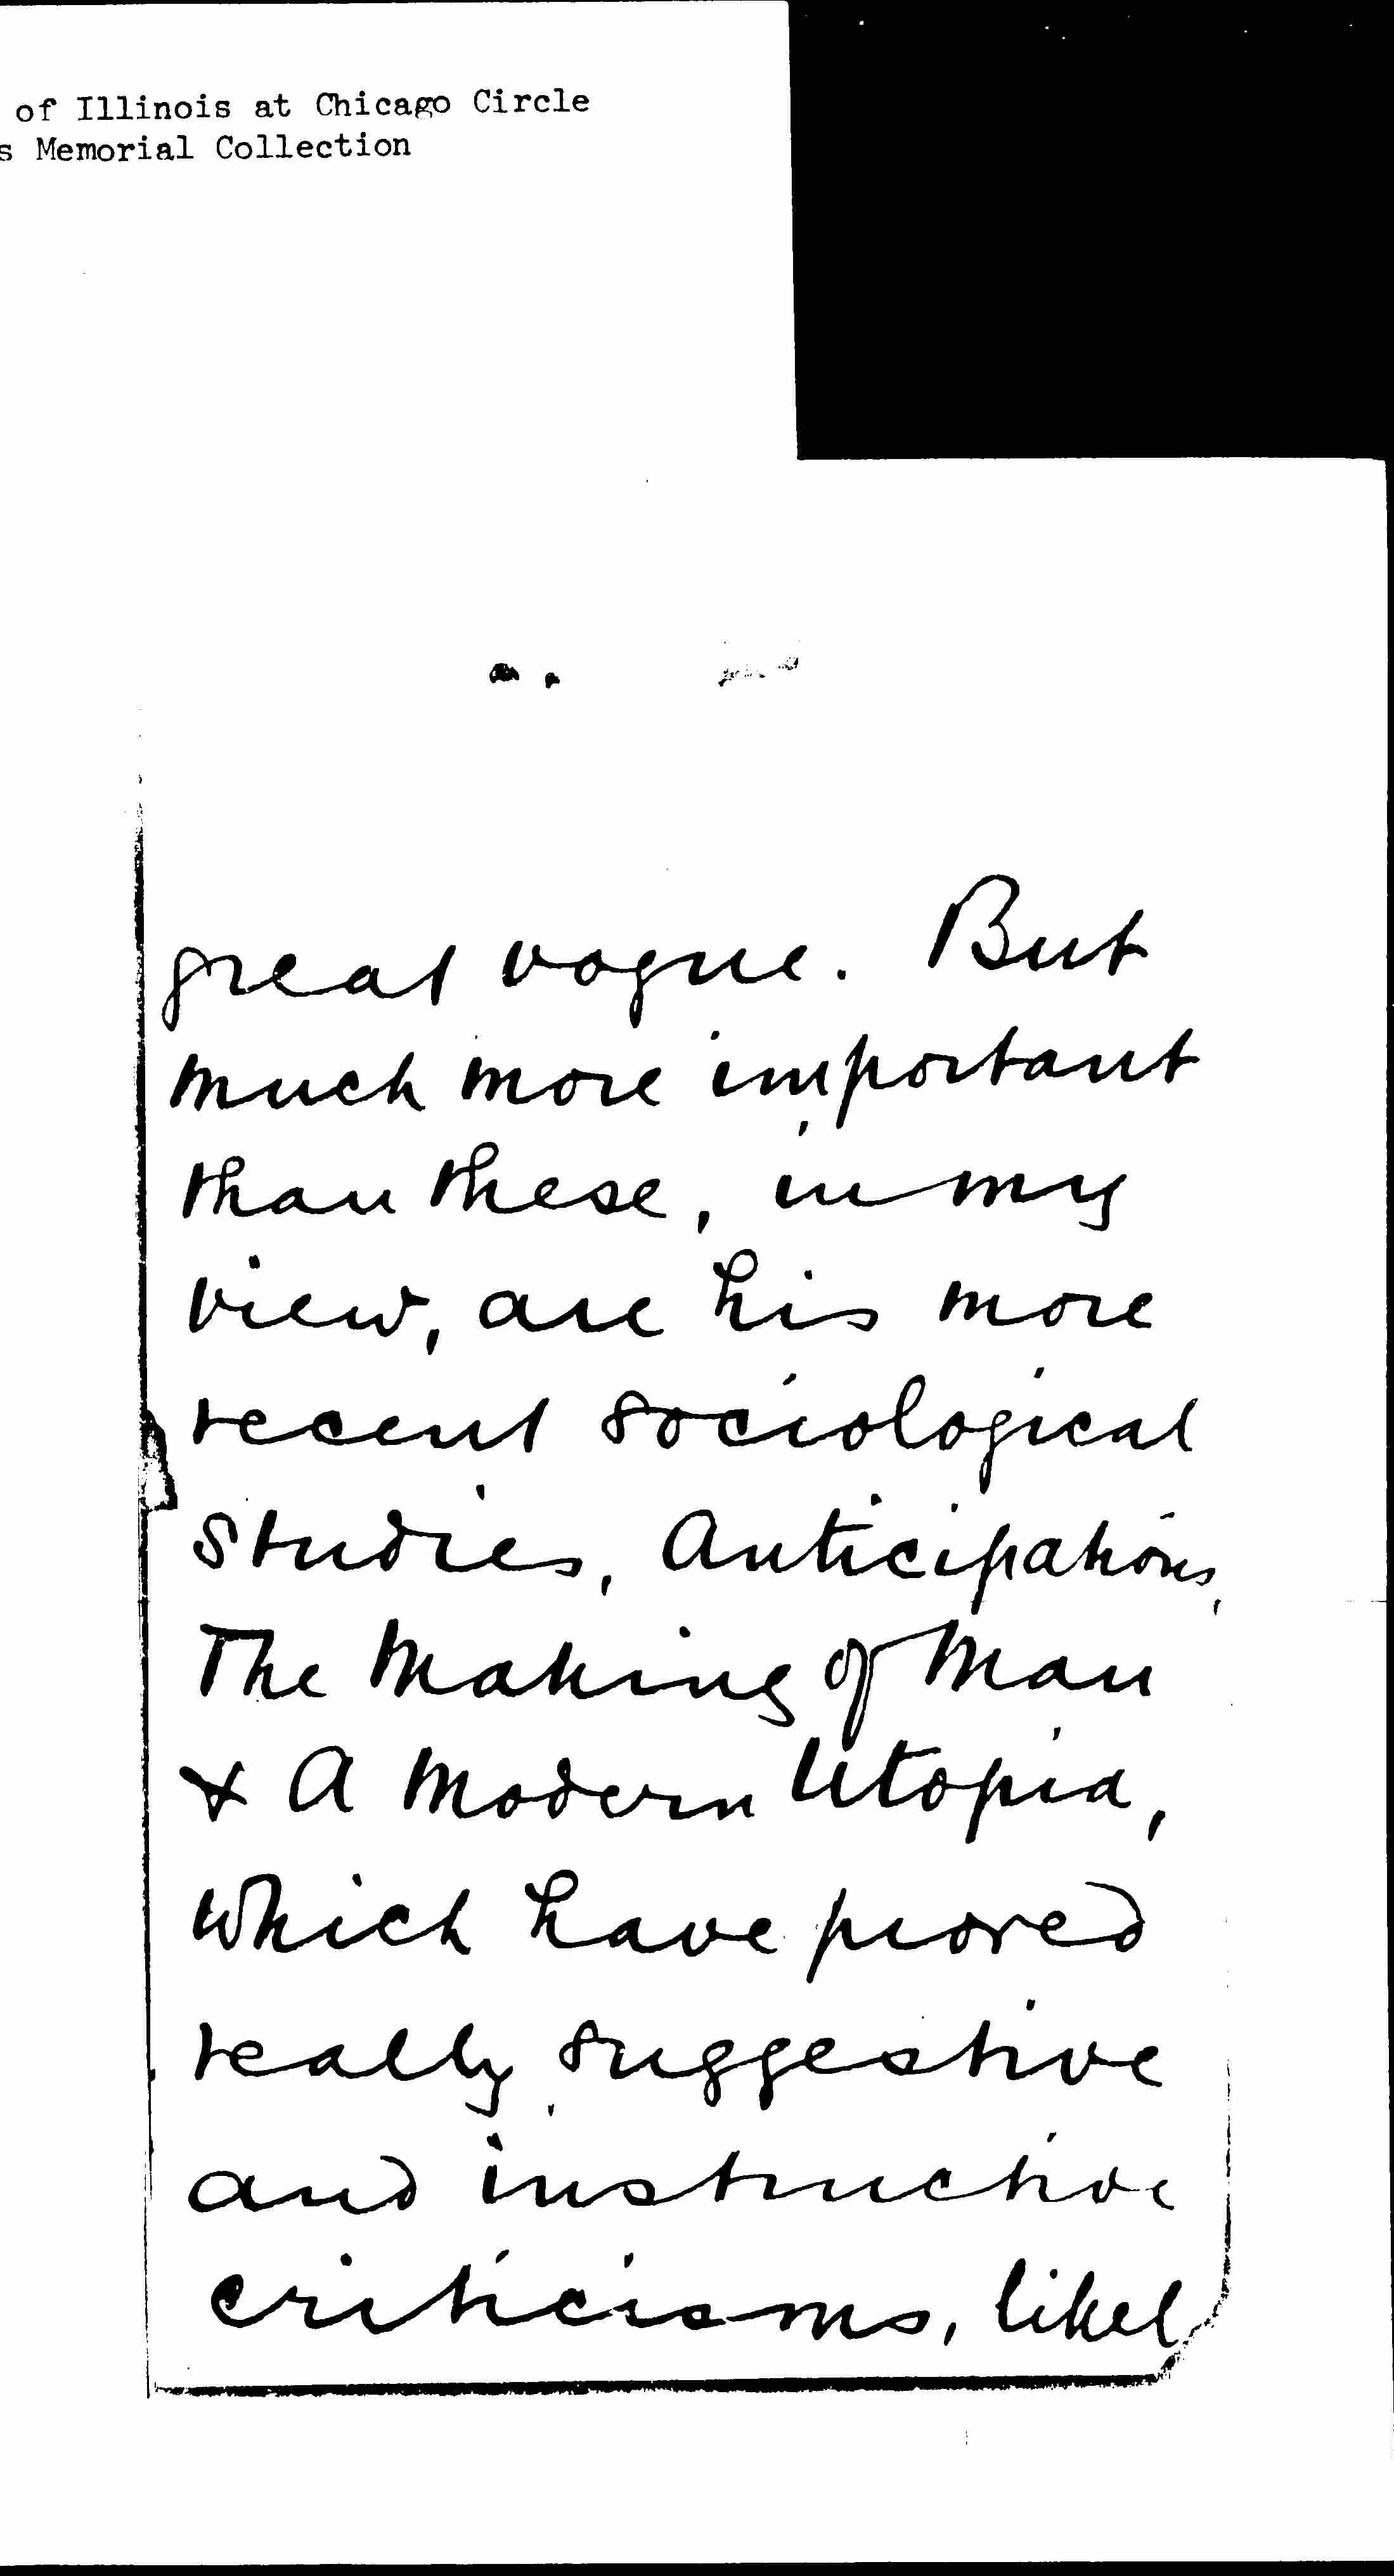 of Illinois at Chicago Circle
s Memorial Collection
great vogue. But
much more important
than these, in my
view, are his more
recent sociological
studies, Anticipations,
The Making of Man
& A Modern Utopia,
which have proved
really suggestive
and instructive
criticisms, likel